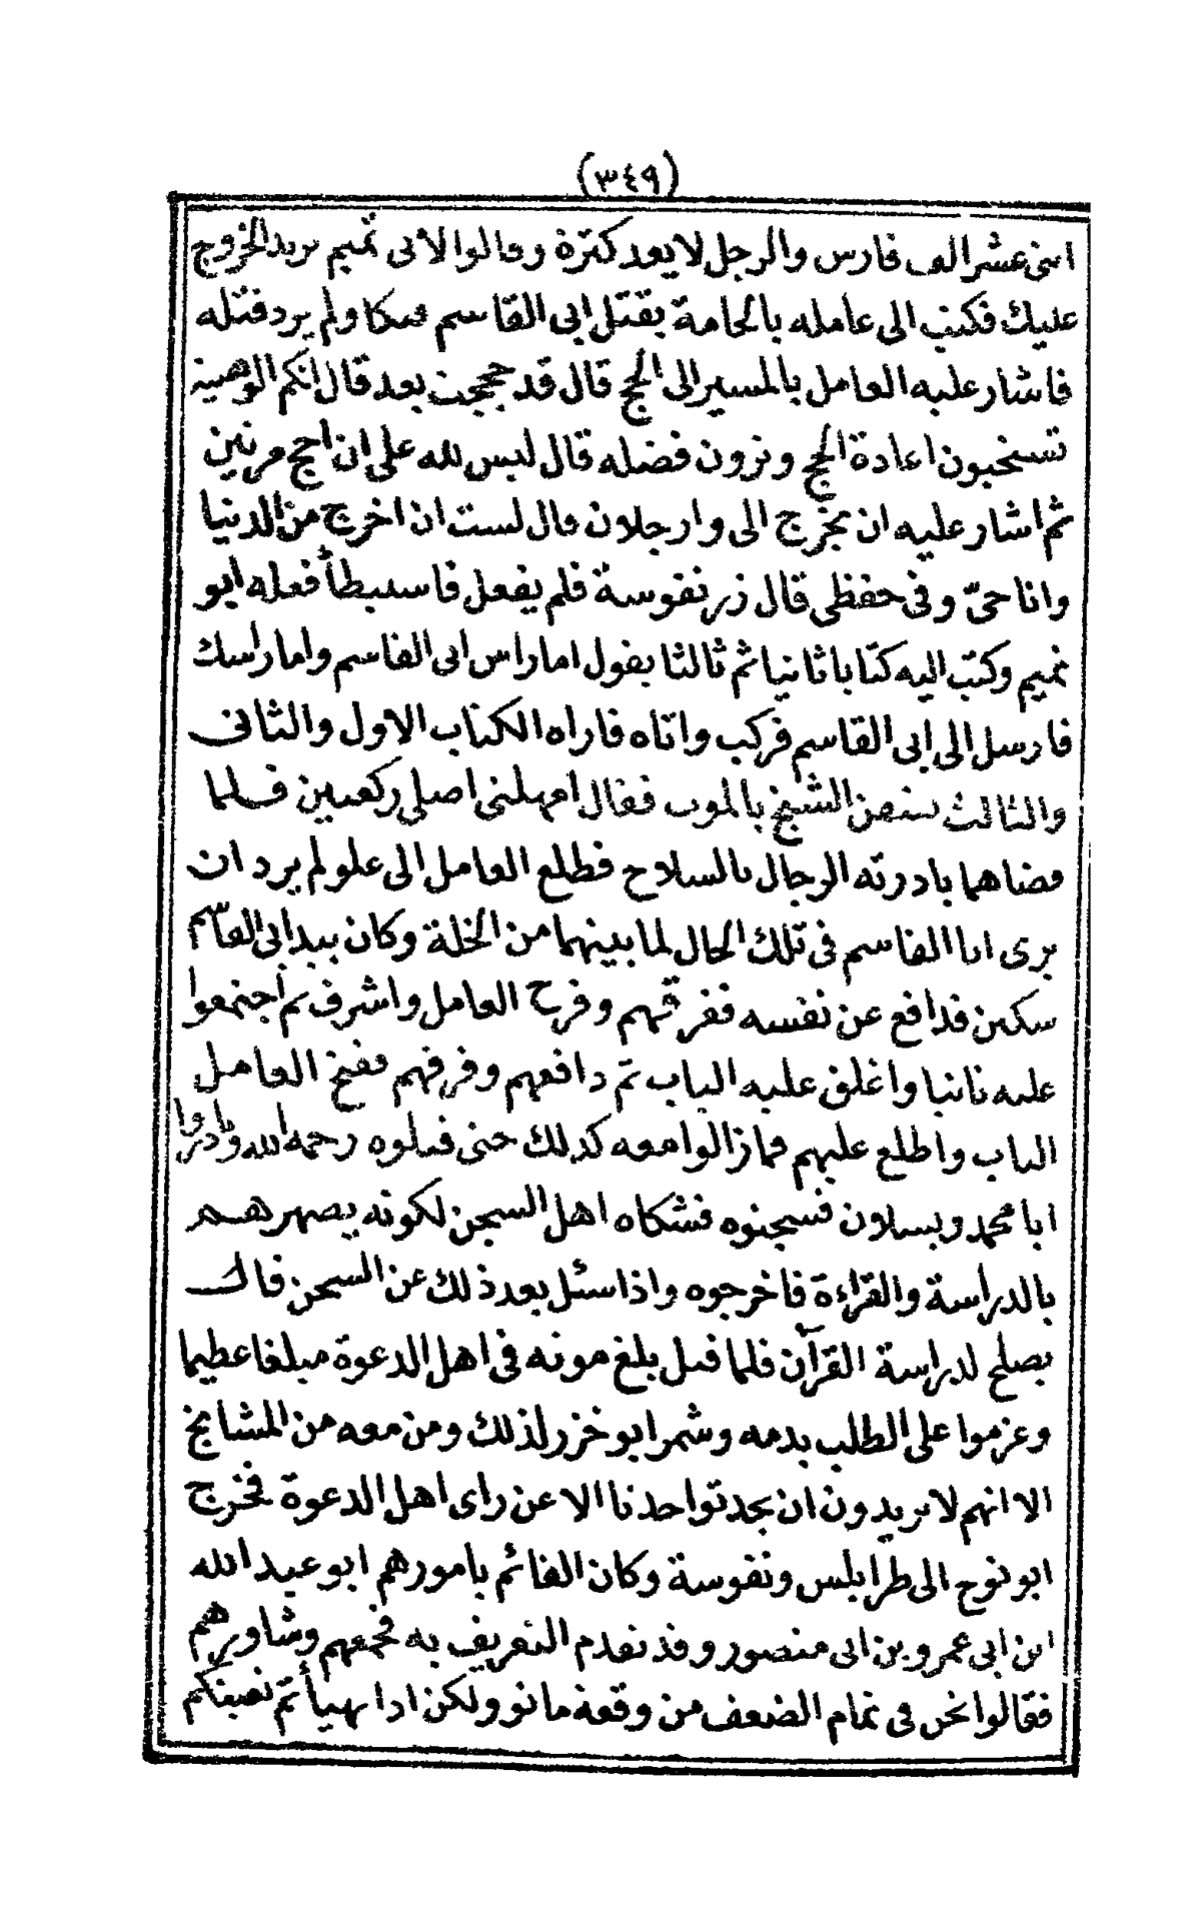 (٣٤٩)
اثنى عشر الف فارس والرجل لا يعد كثرة وقالوا لابى تميم يريد الخروج
عليك فكتب الى عامله بالحامة بقتل ابى القاسم فبكا ولم يرد قتله
فاشار عليه العامل بالمسير الى الحج قال قد حججت بعد قال انكم الوهبية
تستحبون اعادة الحج وترون فضله قال ليس لله على ان احج مرتين
ثم اشار عليه ان يخرج الى وارجلان قال لست ان اخرج من الدنيا
وانا حىّ وفى حفظى قال زر نفوسة فلم يفعل فاستبطأ فعله ابو
تميم وكتب اليه كتابا ثانيا ثم ثالثا يقول اما راس ابى القاسم واما راسك
فارسل الى ابى القاسم فركب واتاه فاراه الكتاب الاول والثانى
والثالث الشيخ بالموت فقال امهلنى اصلى ركعتين فلما
قضاهما بادرته الرجال بالسلاح فطلع العامل الى علو لم يرد ان
يرى ابا القاسم فى تلك الحال لما بينهما من الخلة وكان بيد ابى القاسم
سكين فدافع عن نفسه ففرقهم وفرح العامل واشرف ثم اجتمعوا
عليه ثانيا واغلق عليه الباب ثم دافعهم وفرقهم ففتح العامل
الباب واطلع عليهم فمازالوا معه كذلك حتى قتلوه رحمه الله وادركوا
ابا محمد ويسلان فسجنوه فشكاه اهل السجن لكونه يصهرهم
بالدراسة والقراءة فاخرجوه واذا سئل بعد ذلك عن السجن قال
يصلح لدراسة القرآن فلما قتل بلغ موته فى اهل الدعوة مبلغا عظيما
وعزموا على الطلب بدمه وشمر ابو خزر لذلك ومن معه من المشايخ
الا انهم لا يريدون ان يحدثوا حدثا الا عن راى اهل الدعوة فخرج
ابو نوح الى طرابلس ونفوسة وكان القائم بامورهم ابو عبد الله
ابن ابى عمرو بن ابى منصور وقد تقدم التعريف به فجمعهم وشاورهم
فقالوا نحن فى تمام الضعف من وقعة مانو ولكن اذا تهيأتم نصبنكم